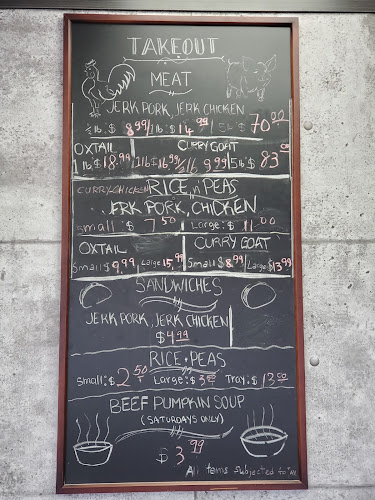 TAKEOUT
MEAT
JERK PORK, JERK CHICKEN
½ lb: $ 8.99 1lb $ 14.99 5lb $ 70.00
OXTAIL CURRY GOAT
1 lb $ 18.99 1lb $ 16.99 ½ lb 9.99 5lb $ 83.00
CURRY CHICKEN RICE n' PEAS
JERK PORK, CHICKEN
Small: $ 7.50 Large: $ 11.00
OXTAIL CURRY GOAT
Small $ 9.99, Large 15.99 Small $ 8.99 Large $ 13.99
SANDWICHES
JERK PORK, JERK CHICKEN
$4.99
RICE • PEAS
Small: $ 2.50 Large: $ 3.50 Tray: $ 13.50
BEEF PUMPKIN SOUP
(SATURDAYS ONLY)
$ 3.99
All items subjected to